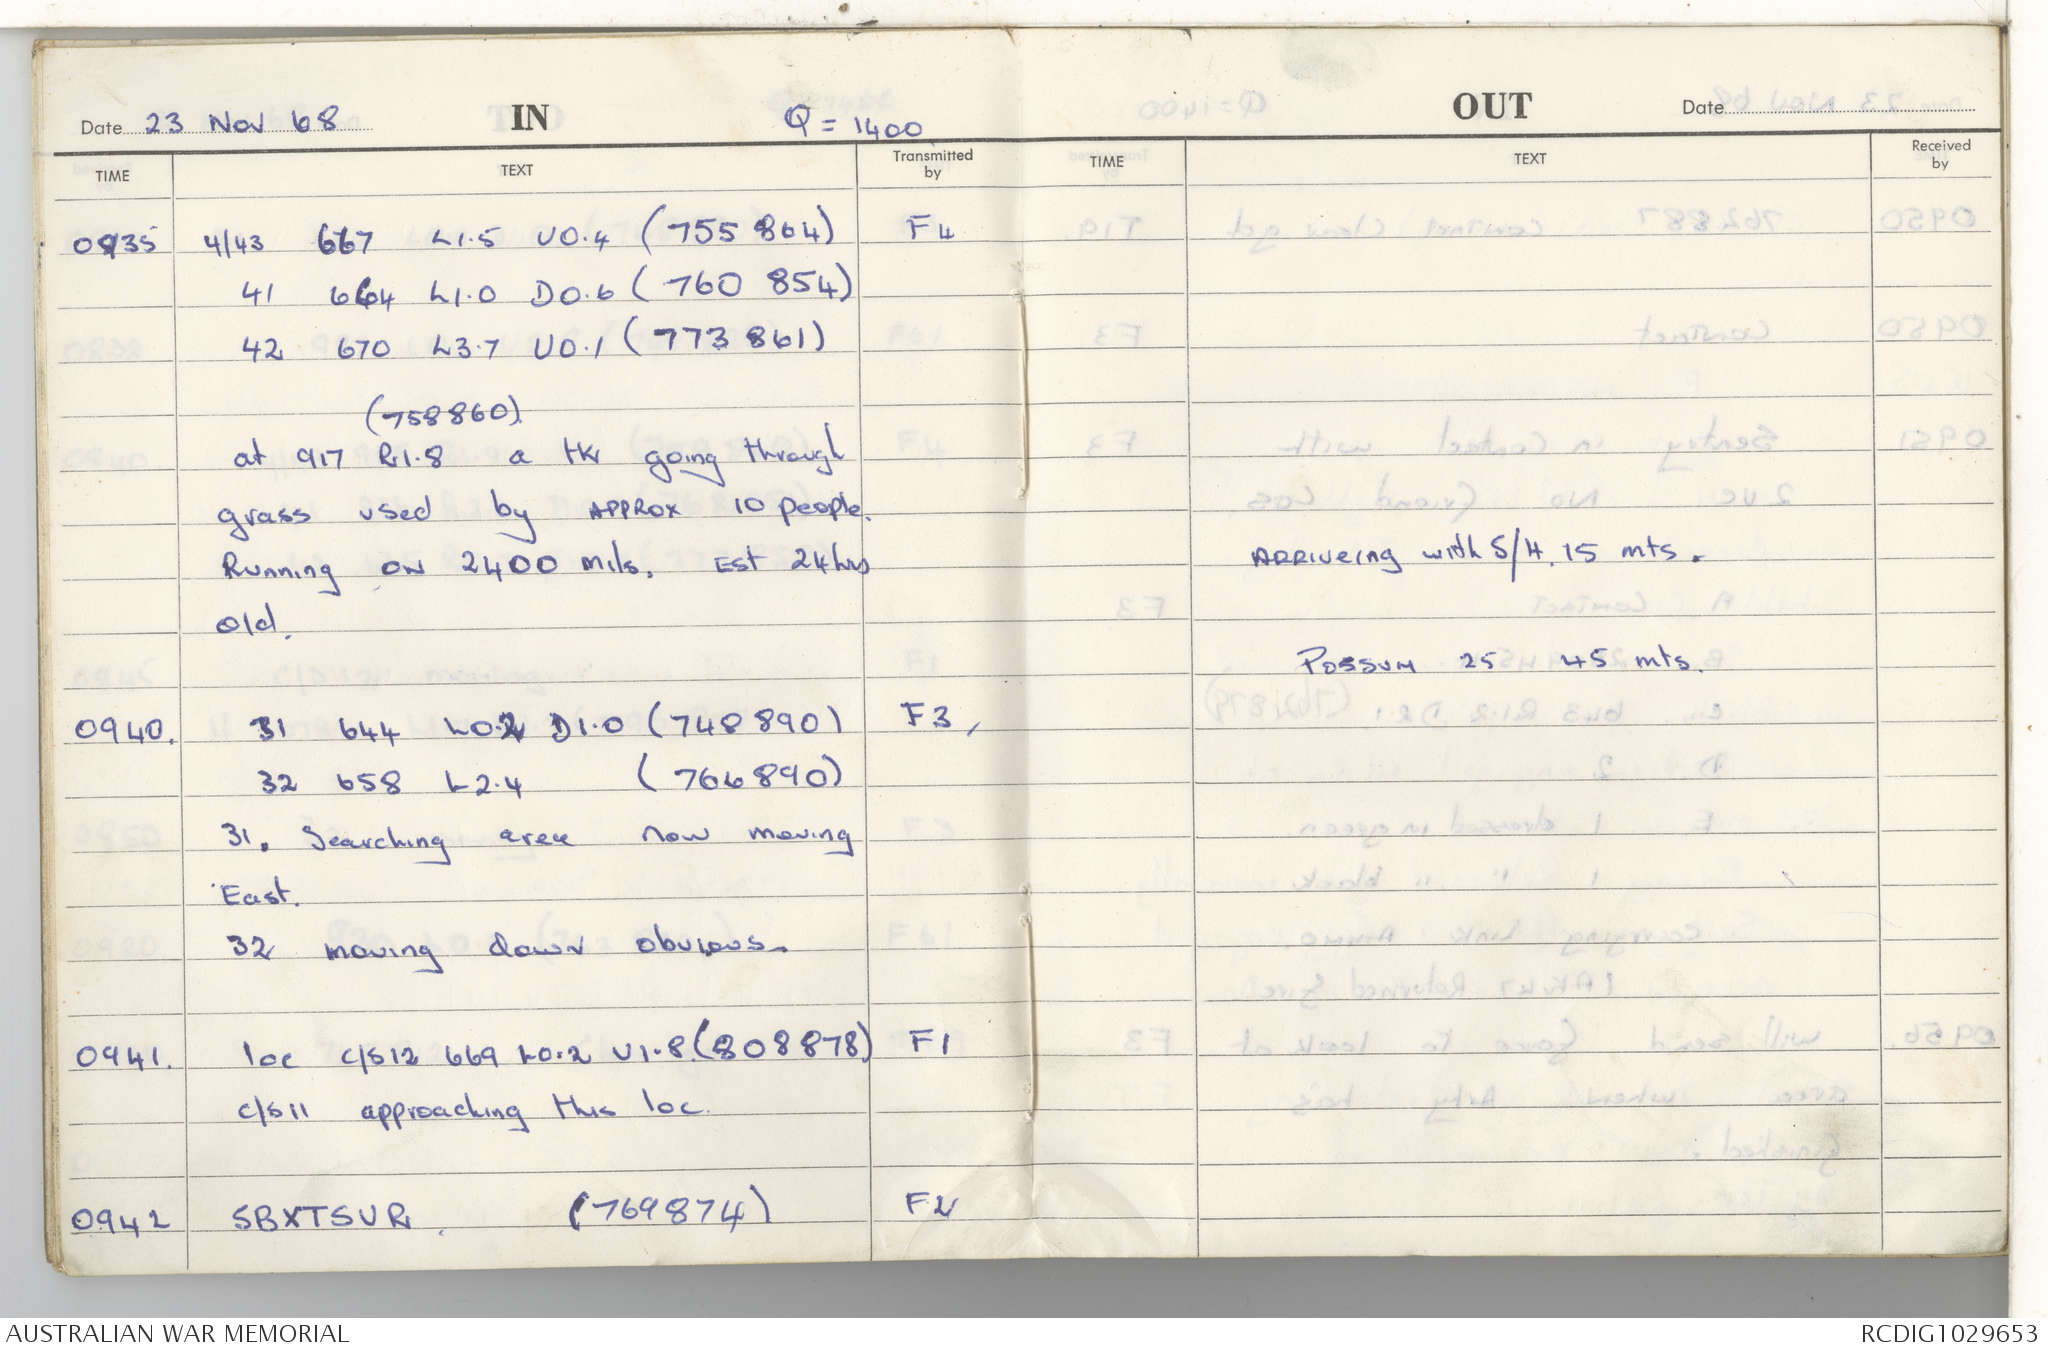 Date 23 Nov 68 IN Q = 1400
TIME TEXT Transmitted by
0935 4/43 667 L1.5 U0.4 (755864) F4
41 664 L1.0 D0.6 (760 854)
42 670 L3.7 U0.1 (773861)
(758860)
at 917 R1.8 a trk going through
grass used by APPROX 10 people.
Running on 2400 mils. Est 24hrs
old.
0940. 31 644 L0.2 D1.0 (748890) F3,
32 658 L2.4 (766890)
31. Searching area now moving
East.
32 moving down obvious.
0941. loc c/s12 669 L0.2 U1.8 (808878) F1
c/s11 approaching this loc.
0942 SBXTSUR. (769874) F2
OUT Date
TIME TEXT Received by
ARRIVEING with S/H. 15 mts.
POSSUM 25 45 mts.
AUSTRALIAN WAR MEMORIAL RCDIG1029653